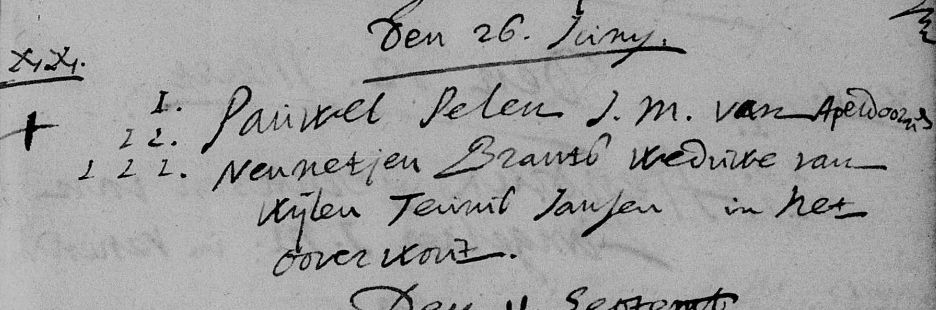 Den 26. Juny.
X, X.
1. Pauwel Pelen J. M. van Apeldoorn
+ 2 2. Nennetjen Brants weduwe van
2 2 2. wijlen Teunis Jansen in het
ooverwout.
Den 11 Septemb